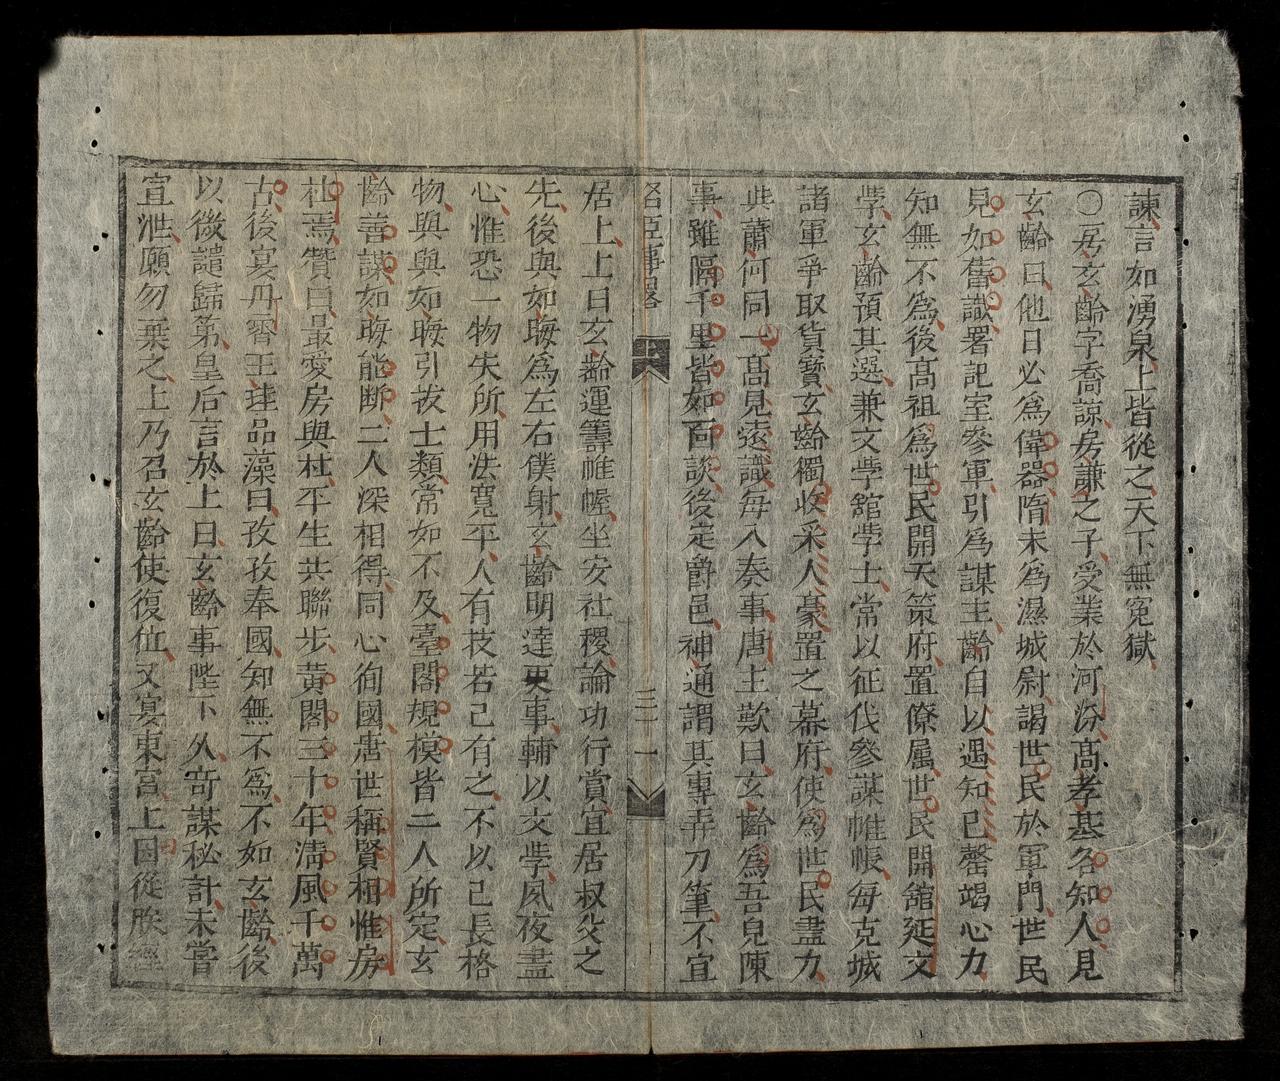 諫言如湧泉上皆從之天下無冤獄
〇房玄齡字喬諒房謙之子受業於河汾高孝基名知人見
玄齡曰他日必為偉器隋末為濕城尉謁世民於軍門世民
見如舊識署記室參軍引為謀主齡自以遇知己罄竭心力
知無不為後高祖為世民開天策府置僚属世民開舘延文
學玄齡預其選兼文學舘學士常以征伐參謀帷帳每克城
諸軍爭取貨寶玄齡獨收采人豪置之幕府使為世民盡力
與蕭何同一高見遠識每入奏事唐主歎曰玄齡為吾見陳
事雖隔千里皆如面談後定爵邑神通謂其專弄刀筆不宜
名臣事畧
三一
居上上曰玄齡運籌帷幄坐安社稷論功行賞宜居叔父之
先後與如晦為左右僕射玄齡明達吏事輔以文學夙夜盡
心惟恐一物失所用法寬平人有技若己有之不以己長格
物與與如晦引拔士類常如不及臺閣規模皆二人所定玄
齡善謀如晦能断二人深相得同心徇國唐世稱賢相惟房
杜焉贊曰最愛房與杜平生共聯步黃閣三十年淸風千萬
古後宴丹霄王珪品藻曰孜孜奉國知無不為不如玄齡後
以微譴歸第皇后言於上曰玄齡事陛下久竒謀秘計未嘗
宣泄願勿棄之上乃召玄齡使復位又宴東宮上曰從朕經